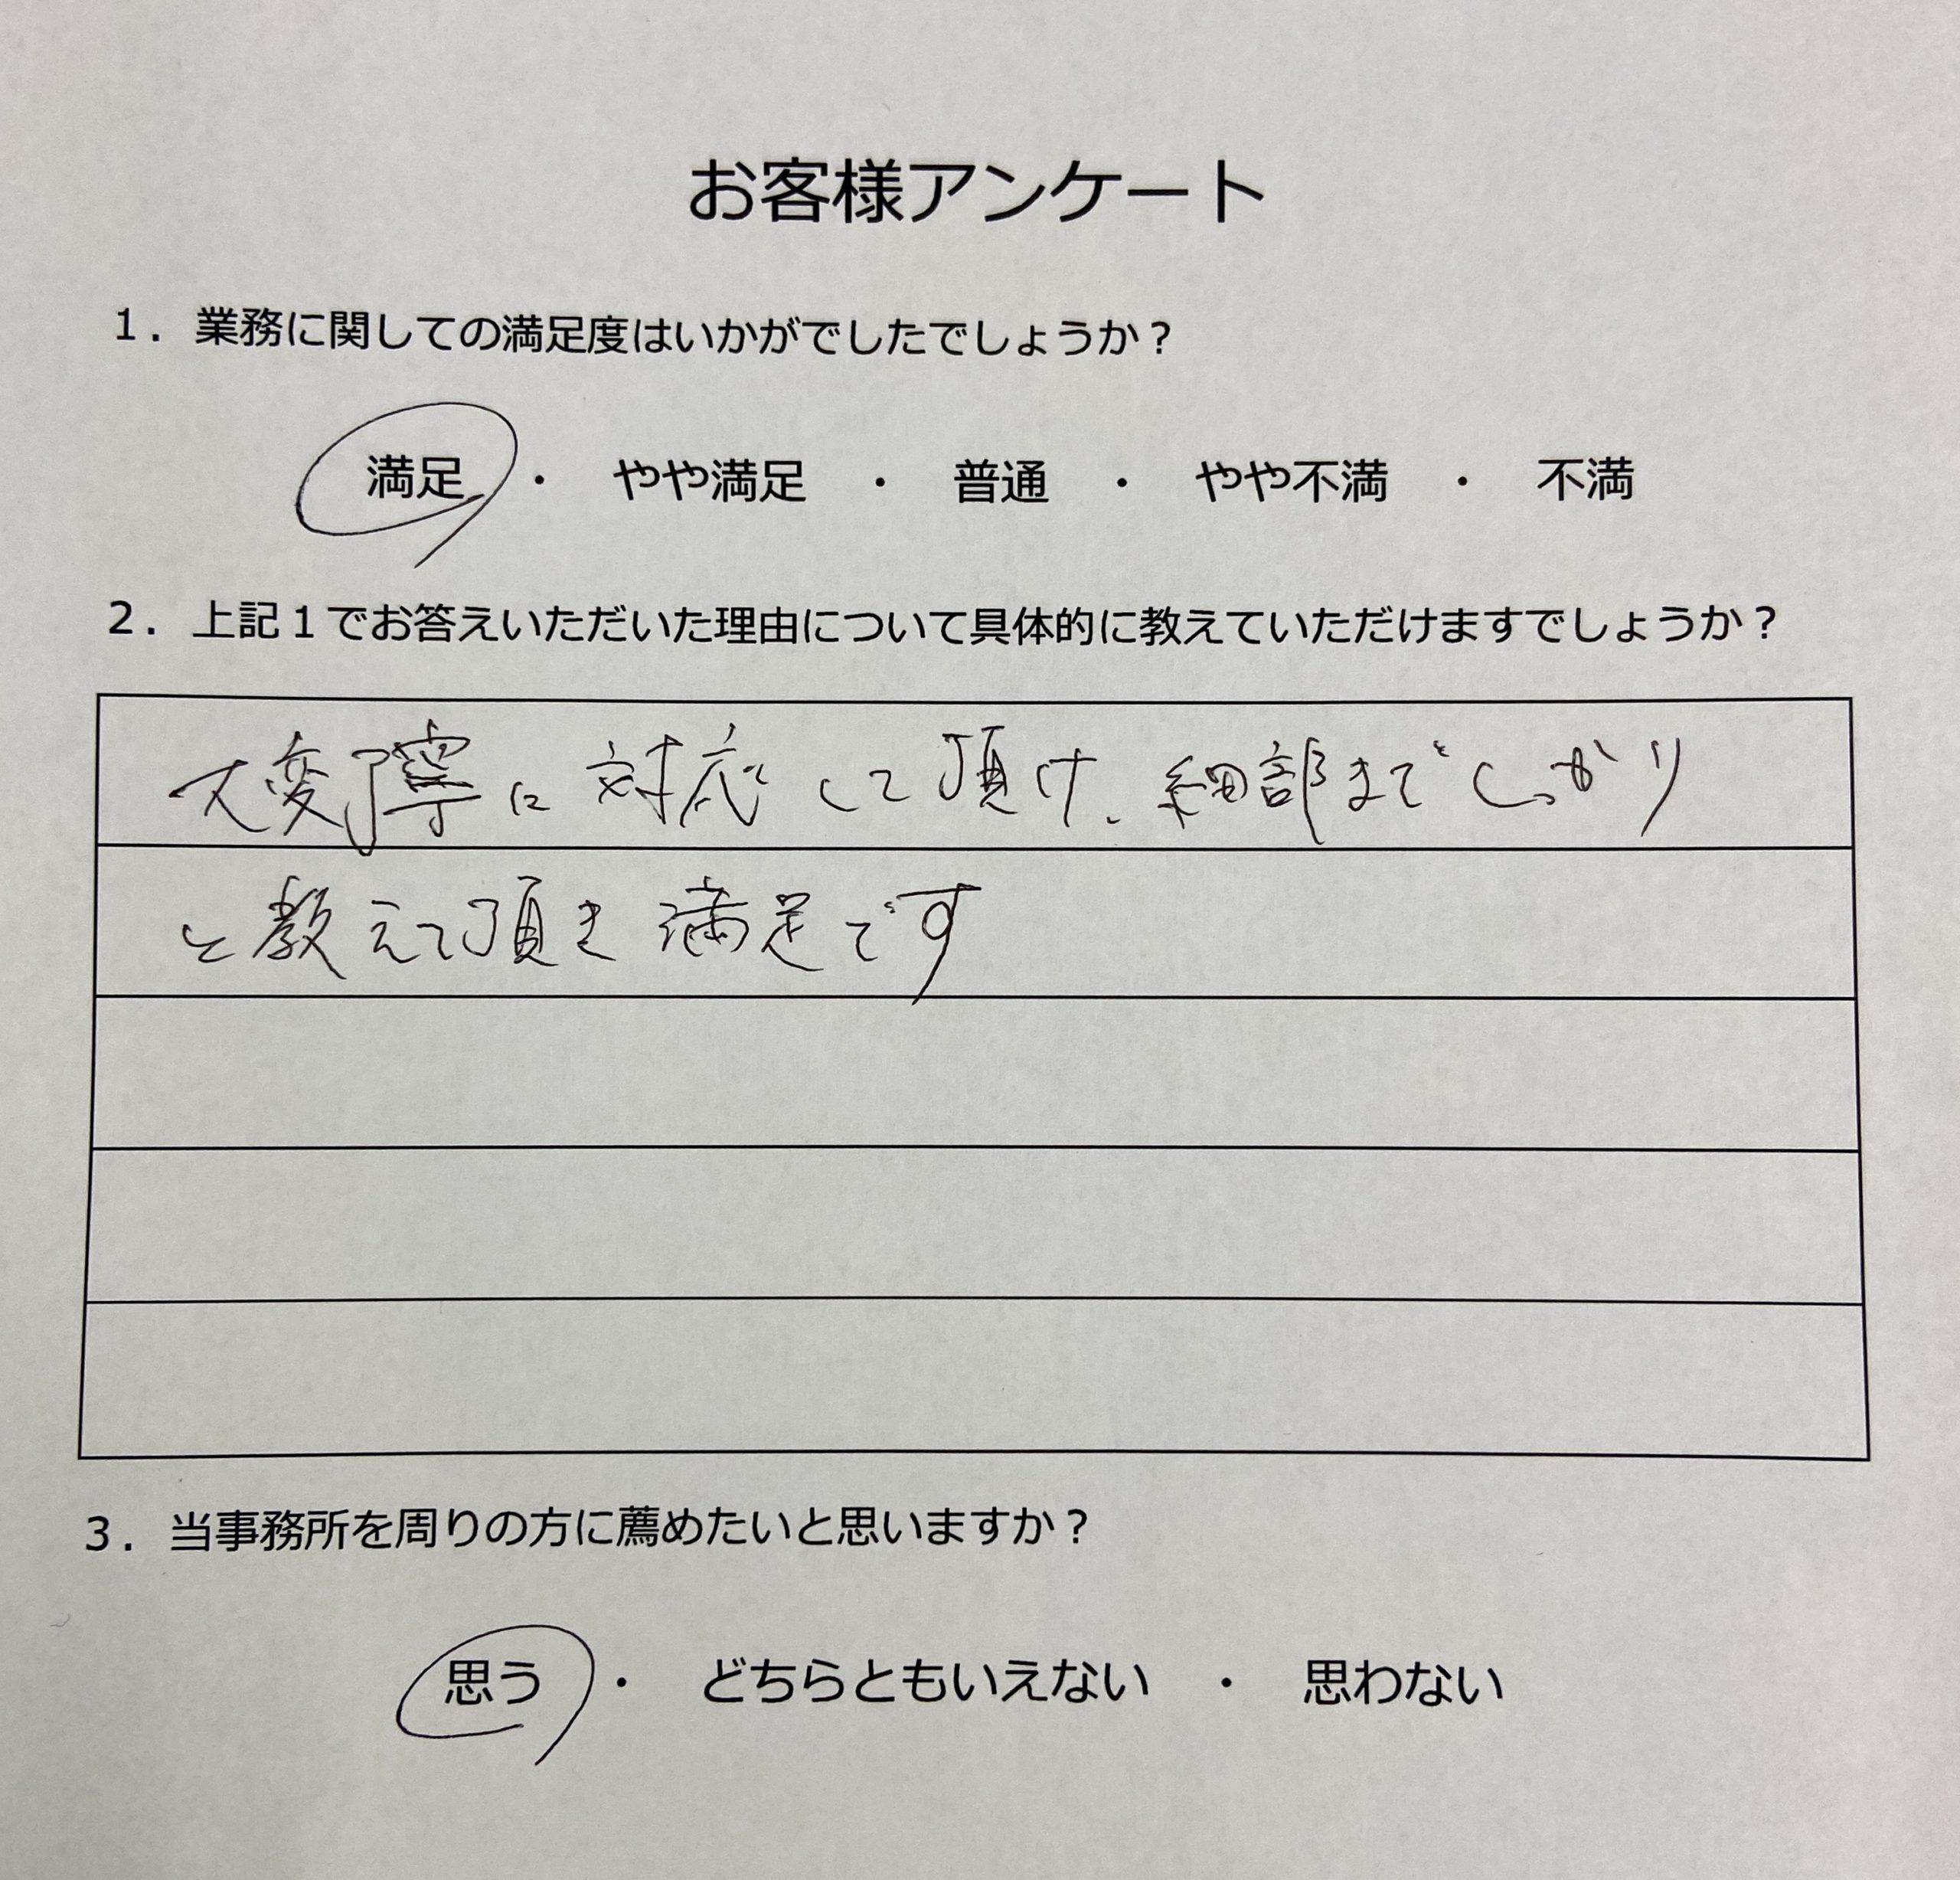 お客様アンケート
1．業務に関しての満足度はいかがでしたでしょうか？
満足　・　やや満足　・　普通　・　やや不満　・　不満
2．上記１でお答えいただいた理由について具体的に教えていただけますでしょうか？
大変丁寧に対応して頂け、細部までしっかり
と教えて頂き満足です
3．当事務所を周りの方に薦めたいと思いますか？
思う　・　どちらともいえない　・　思わない